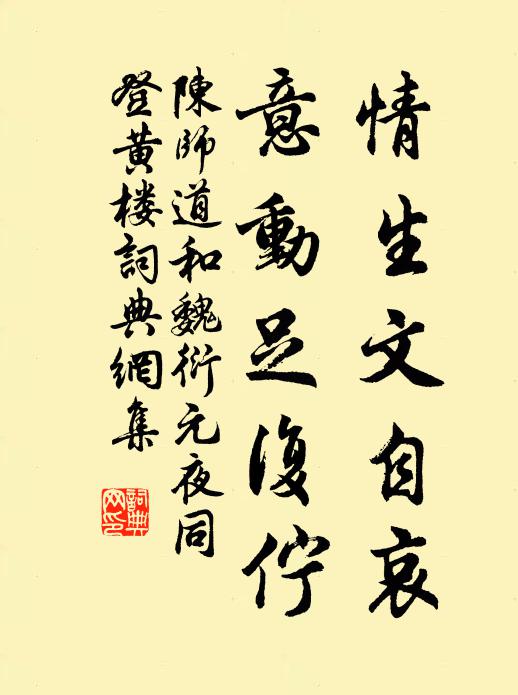 情生文自哀
意動足復佇
陳師道和魏衍元夜同
登黄楼詞典網集
詞典网印